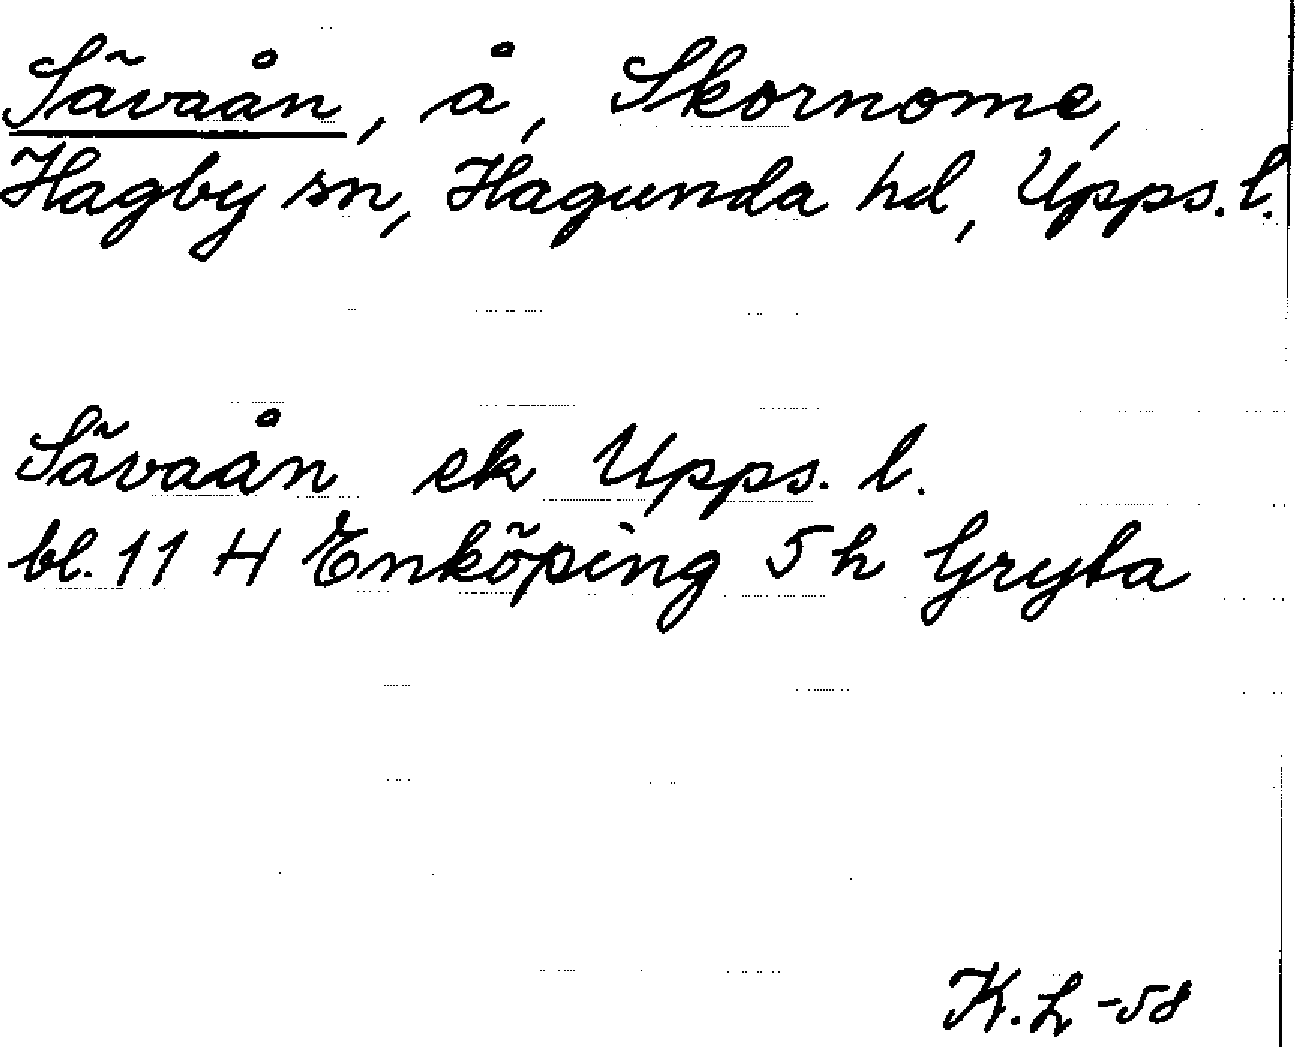 Sävaån, å, Skornome,
Hagby sn, Hagunda hd, Upps. l.
Sävaån ek Upps. l.
bl. 11 H Enköping 5 h Gryta
K. L -58